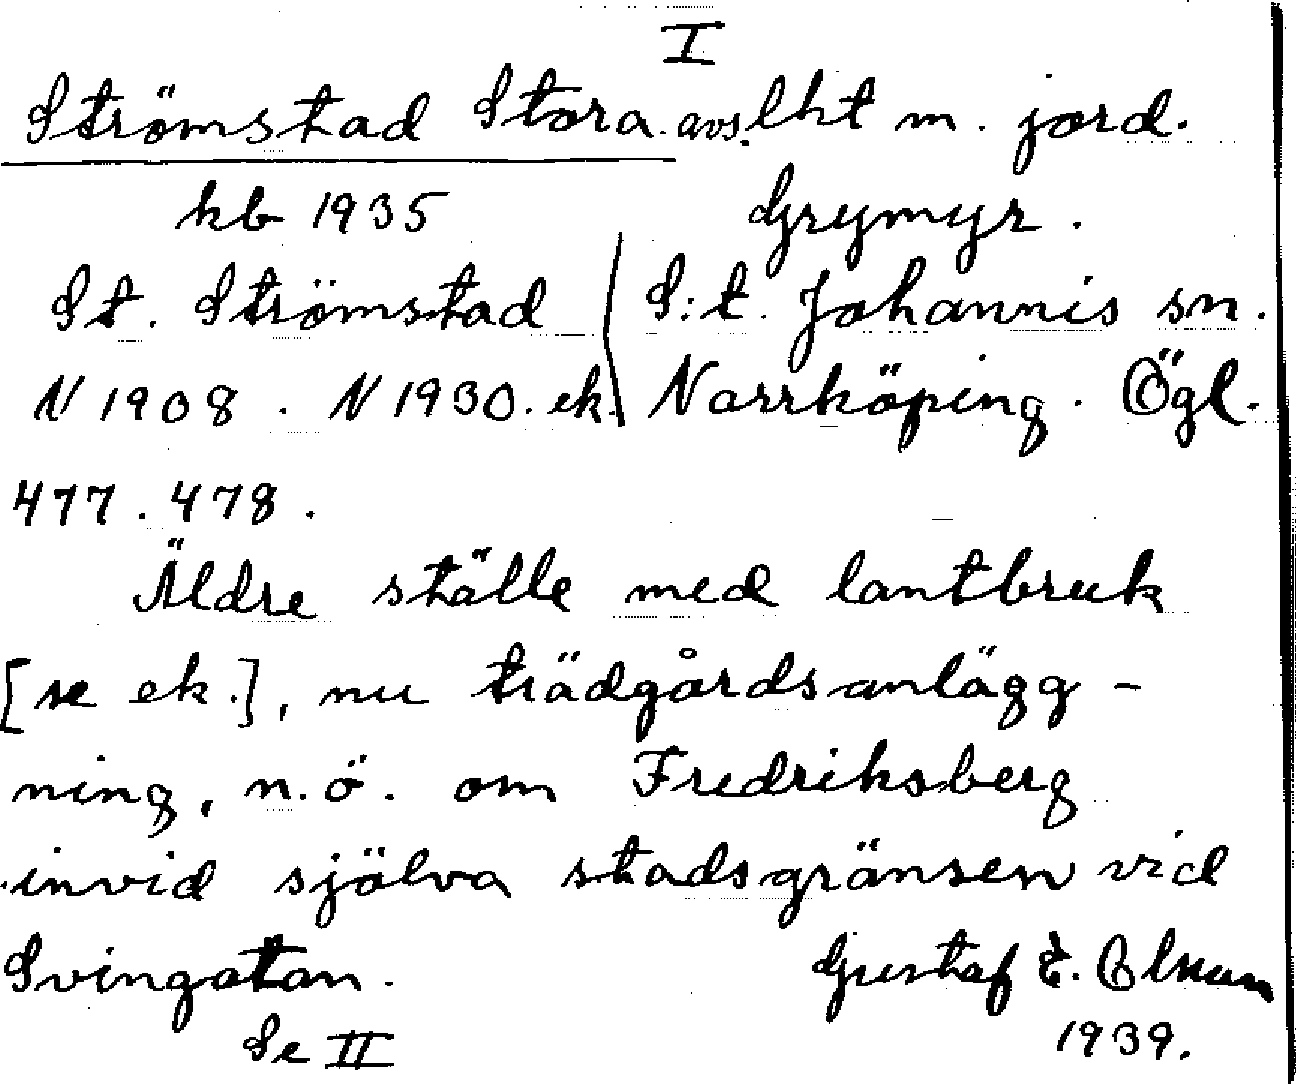 I
Strömstad Stora. avs. lht m. jord.
kb 1935 Grymyr.
St. Strömstad S:t. Johannis sn.
N 1908. N 1930. ek. Norrköping. Ögl.
477. 478.
Äldre ställe med lantbruk
[se ek.], nu trädgårdsanlägg-
ning, n.ö. om Fredriksberg
invid själva stadsgränsen vid
Svingatan. Gustaf E.
Se II 1939.